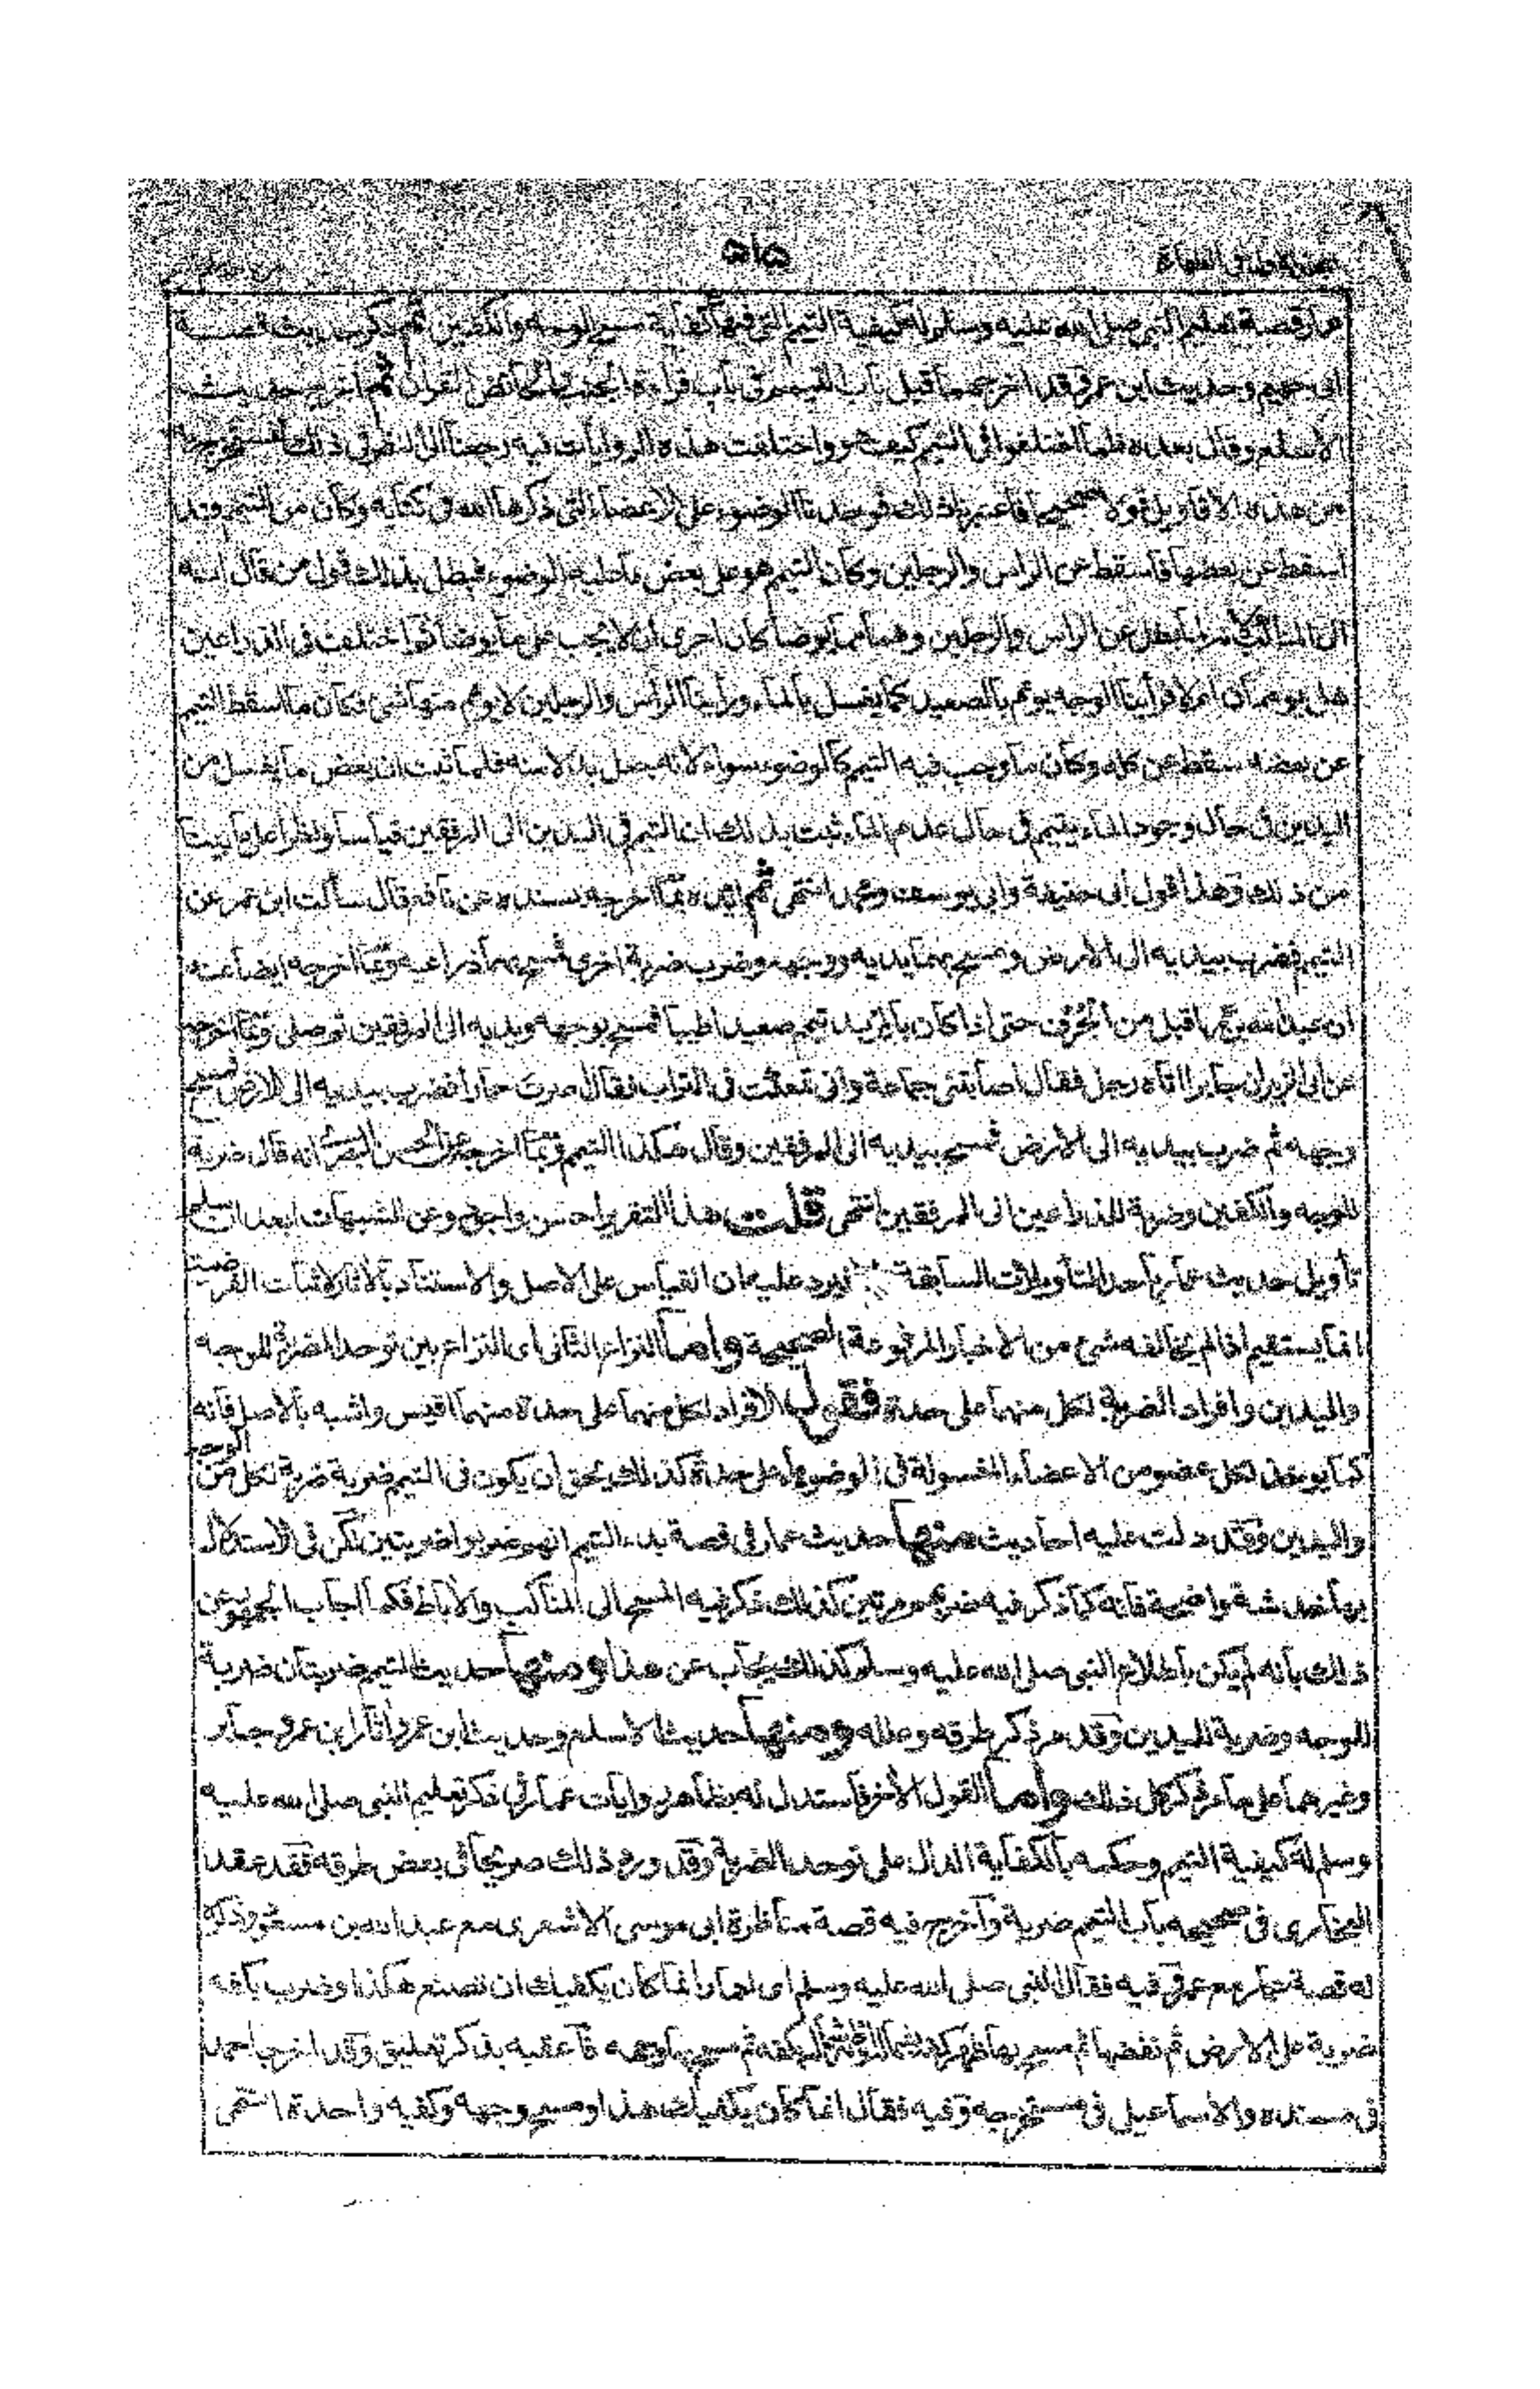 ٥١٥
عمار قصة تعليم النبي صلى الله عليه وسلم له كيفية التيمم التي فيها كفاية مسح الوجه والكفين ثم ذكر حديث قصة
ابى جهيم وحديث ابن عمر وقد اخرجهما قبيل باب التيمم فى باب قراءة الجنب والحائض القران ثم اخرج حديث
الاسلع وقال بعده فلما اختلفوا فى التيمم كيف هو واختلفت هذه الروايات فيه رجعنا الى النظر فى ذلك لنستخرج به
من هذه الاقاويل قولا صحيحا فاعتبرنا ذلك فوجدنا الوضوء على الاعضاء التى ذكرها الله فى كتابه وكان من التيمم وقد
اسقط عن بعضها فاسقط عن الراس والرجلين وكان التيمم هو على بعض ما عليه الوضوء فبطل بذلك قول من قال انه
الى المناكب لانه لما بطل عن الراس والرجلين وهما مما يوضأ كان احرى ان لا يجب على ما لا يوضأ ثم اختلف فى الذراعين
هل يوممان ام لا فرأينا الوجه يومم بالصعيد كما يغسل بالماء ورأينا الرأس والرجلين لا يومم منهما شئ فكان ما اسقط التيمم
عن بعضه سقط عن كله وكان ما وجب فيه التيمم كالوضوء سواء لانه جعل بدلا منه فلما ثبت ان بعض ما يغسل من
اليدين فى حال وجود الماء ييمم فى حال عدم الماء ثبت بذلك ان التيمم فى اليدين الى المرفقين قياسا ونظرا على ما بينا
من ذلك وهذا قول ابى حنيفة وابى يوسف ومحمد انتهى ثم ايده بما اخرجه بسنده عن نافع قال سألت ابن عمر عن
التيمم فضرب بيديه الى الارض ومسح بهما يديه ووجهه وضرب ضربة اخرى فمسح بهما ذراعيه وبما اخرجه ايضا عنه
ان عبد الله بن عمر اقبل من الجرف حتى اذا كان بالمربد تيمم صعيدا طيبا فمسح بوجهه ويديه الى المرفقين ثم صلى وبما اخرجه
عن ابى الزبير ان جابرا اتاه رجل فقال اصابتنى جنابة وانى تمعكت فى التراب فقال صرت حمارا فضرب بيديه الى الارض فمسح
وجهه ثم ضرب بيديه الى الارض فمسح بيديه الى المرفقين وقال هكذا التيمم وبما اخرجه عن الحسن البصرى انه قال ضربة
للوجه والكفين وضربة للذراعين الى المرفقين انتهى قلت هذا التقرير احسن واجود وعن الشبهات ابعد ان سلم
تأويل حديث عمار باحد التأويلات السابقة يرد عليه ان القياس على الاصل والاستناد بالاثار لاثبات الفرضية
انما يستقيم اذا لم يخالفه شئ من الاخبار المرفوعة الصحيحة واما النزاع الثانى اى النزاع بين توحد الضربة للوجه
واليدين وافراد الضربة لكل منهما على حدة فنقول الافراد لكل منهما على حدة منهما اقيس واشبه بالاصل فانه
كما يوخذ لكل عضو من الاعضاء المغسولة فى الوضوء ماء على حدة كذلك يحق ان يكون فى التيمم ضربة ضربة لكل من الوجه
واليدين وقد دلت عليه احاديث منها حديث عمار فى قصة بدء التيمم انهم ضربوا ضربتين لكن فى الاستدلال
بها خدشة واضحة فانه كما ذكر فيه ضربهم مرتين كذلك ذكر فيه المسح الى المناكب والاباط فكما اجاب الجمهور عن
ذلك بانه لم يكن باطلاع النبى صلى الله عليه وسلم كذلك يجاب عن هذا ومنها حديث التيمم ضربتان ضربة
للوجه وضربة لليدين وقد مر ذكر طرقه وعلله ومنها حديث الاسلع وحديث ابن عمر واثار ابن عمر وجابر
وغيرهما على ما مر ذكر كل ذلك واما القول الاخر فاستدل له بظاهر روايات عمار فى ذكر تعليم النبى صلى الله عليه
وسلم له كيفية التيمم وحكمه بالكفاية الدال على توحد الضربة وقد ورد ذلك صريحا فى بعض طرقه فقد عقد
البخارى فى صحيحه باب التيمم ضربة واخرج فيه قصة مناظرة ابى موسى الاشعرى مع عبد الله بن مسعود وذكره
له قصة عمار مع عمر وفيه فقال النبى صلى الله عليه وسلم اى لعمار انما كان يكفيك ان تصنع هكذا وضرب بكفه
ضربة على الارض ثم نفضها ثم مسح بها ظهر كفه بشماله او ظهر شماله بكفه ثم مسح بها وجهه فاعقبه بذكر تعليق وقد اخرجه احمد
فى مسنده والاسماعيلى فى مستخرجه وفيه فقال انما كان يكفيك هذا ومسح وجهه وكفيه واحدة انتهى